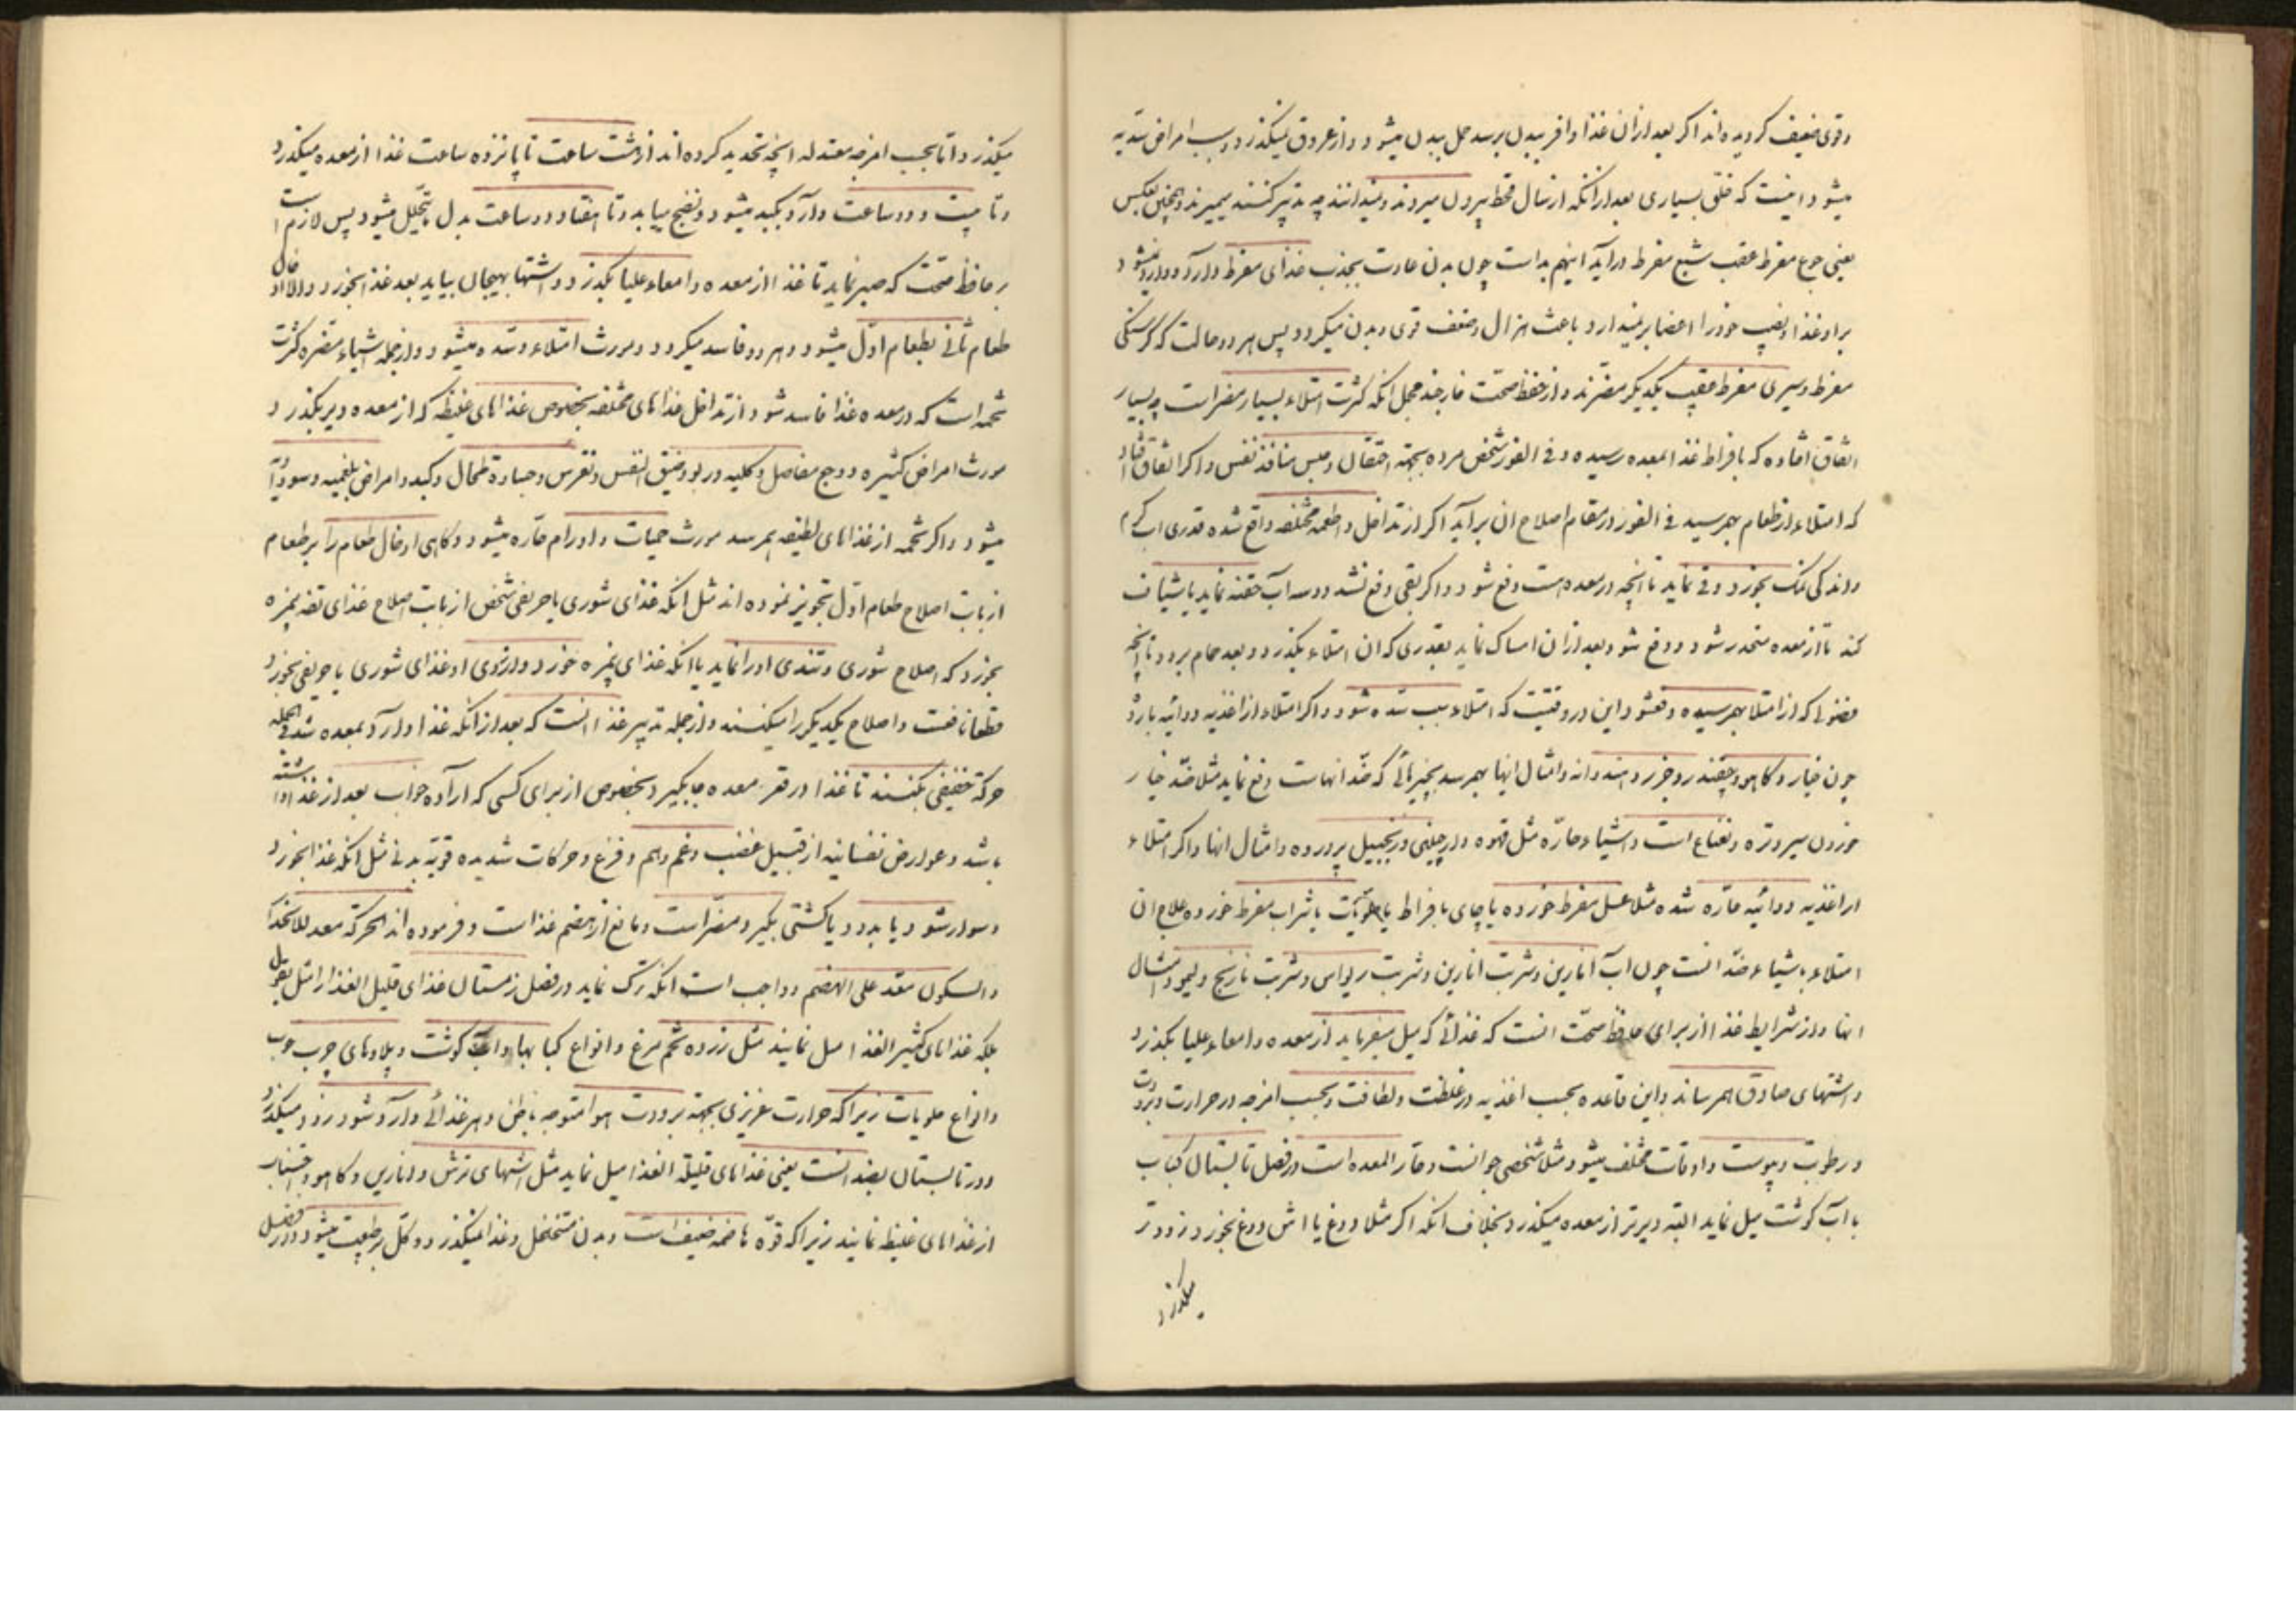 وقوی ضعیف کردیده اند اکر بعد از ان غذا وافر ببدن برسد حمل ببدن میشود و از عروق نمیکذرد و سبب امراض سدیه
میشود اینست که خلق بسیاری بعد از انکه از سال قحط بیرون میروند و نمیدانند چه تدبیر کنند میمیرند و همچنین بعکس
یعنی جوع مفرط عقب شبع مفرط دراید اینهم بد است چون بدن عادت بجذب غذای مفرط دارد و وارد نمیشود
براو غذا و نصیب خود را اعضا برنمیدارد باعث هزال و ضعف قوی و بدن میکردد پس هر دو حالت که کرسنکی
مفرط و سیری مفرط عقیب یکدیکر مضرند و از حفظ صحت خارجند مجمل انکه کثرت امتلاء بسیار مضر است چه بسیار
اتفاق افتاده که بافراط غذا بمعده رسیده و فی الفور شخص مرده بجهته اختقان و حبس منافذ نفس و اکر اتفاق افتاد
که امتلاء از طعام بهم رسید فی الفور در مقام اصلاح ان براید اکر از تداخل و اطعمه مختلفه واقع شده قدری اب کرم
و اندکی نمک بخورد و قی نماید تا انچه در معده هست دفع شود و اکر بقی دفع نشد دو سه اب حقنه نماید یا شیاف
کند تا از معده منحدر شود و دفع شود بعد از ان امساک نماید بقدری که ان امتلاء بکذرد و بعد حمام برود تا انچه
فضولی که از امتلا بهم رسیده دفع شود این در وقتیست که امتلاء سبب سده شود و اکر امتلاء از اغذیه و دوائیه بارد
چون خیار و کاهو و چغندر و جزر و هندوانه و امثال اینها بهم رسد بچیزهائی که ضد انهاست دفع نماید مثلا ضد خیار
خوردن سیر و تره و نعناع است و اشیاء حاره مثل قهوه و دارچینی و زنجبیل پرورده و امثال انها و اکر امتلاء
از اغذیه و دوائیه حاره شده مثلا عسل مفرط خورده یا چای بافراط یا حلویات یا شراب مفرط خورده علاج ان
امتلاء باشیاء ضد انست چون اب انارین و شربت انارین و شربت ریواس و شربت نارنج و لیمو و امثال
انها و از شرایط غذا از برای حافظ صحت انست که غذائی که میل میفرماید از معده و امعاء علیا بکذرد
و اشتهای صادق بهم رساند و این قاعده بحسب اغذیه در غلظت و لطافت و بحسب امزجه در حرارت و برودت
و رطوبت و یبوست و اوقات مختلف میشود مثلا شخصی جوانست و حار المعده است در فصل تابستان کباب
با اب کوشت میل نماید البته دیرتر از معده میکذرد بخلاف انکه اکر مثلا دوغ یا اش دوغ بخورد زودتر
میکذرد
میکذرد و اما بحسب امزجه معتدله انچه تحدید کرده اند از هشت ساعت تا پانزده ساعت غذا از معده میکذرد
و تا بیست و دو ساعت وارد بکبد میشود و نضج مییابد و تا هفتاد و دو ساعت بدل ما یتحلل میشود پس لازم است
بر حافظ صحت که صبر نماید تا غذا از معده و امعاء علیا بکذرد و اشتها بهیجان بیاید بعد غذا بخورد و الا ادخال
طعام ثانی بطعام اول میشود و هر دو فاسد میکردد و مورث امتلاء و سده میشود و از جمله اشیاء مضره کثرت
تخمه است که در معده غذا فاسد شود از تداخل غذاهای مختلفه بخصوص غذاهای غلیظه که از معده دیر بکذرد و
مورث امراض کثیره و وجع مفاصل و کلیه و ربو و ضیق النفس و نقرس و جساره طحال و کبد و امراض بلغمیه و سوداویه
میشود و اکر تخمه از غذاهای لطیفه بهم رسد مورث حمیات و اورام حاره میشود و کاهی ادخال طعام را بر طعام
از بابت اصلاح طعام اول تجویز نموده اند مثل انکه غذای شوری یا حریفی شخص از بابت اصلاح غذای تفه بیمزه
بخورد که اصلاح شوری و تندی او را نماید یا انکه غذای بیمزه خورد و از روی او غذای شوری یا حریفی بخورد
قطعا نافعست و اصلاح یکدیکر را میکنند و از جمله تدبیر غذا انست که بعد از انکه غذا وارد بمعده شد فی الجمله
حرکة خفیفی بکنند تا غذا در قعر معده جا بکیرد بخصوص از برای کسی که اراده خواب بعد از غذا داشته
باشد و عوارض نفسانیه از قبیل غضب و غم و هم و فزع و حرکات شدیده قویه بدنی مثل انکه غذا بخورد
و سوار شود یا بدود یا کشتی بکیرد مضر است و مانع از هضم غذا است و فرموده اند الحرکة معد للانحدار
و السکون معد علی الهضم و واجب است انکه ترک نماید در فصل زمستان غذای قلیل الغذا را مثل بقول
بلکه غذاهای کثیر الغذا میل نمایند مثل زرده تخم مرغ و انواع کبابها و اب کوشت و پلاوهای چرب خوب
و انواع حلویات زیرا که حرارت غریزی بجهته برودت هوا متوجه باطن و هر غذائی وارد شود زود میکذرد
و در تابستان بضد انست یعنی غذاهای قلیلة الغذا میل نماید مثل اشهای ترش و انارین و کاهو و اجتناب
از غذاهای غلیظه نمایند زیرا که قوه هاضمه ضعیف است و بدن متخلخل و غذا نمیکذرد و کل بر طبیعت میشود و در فصل